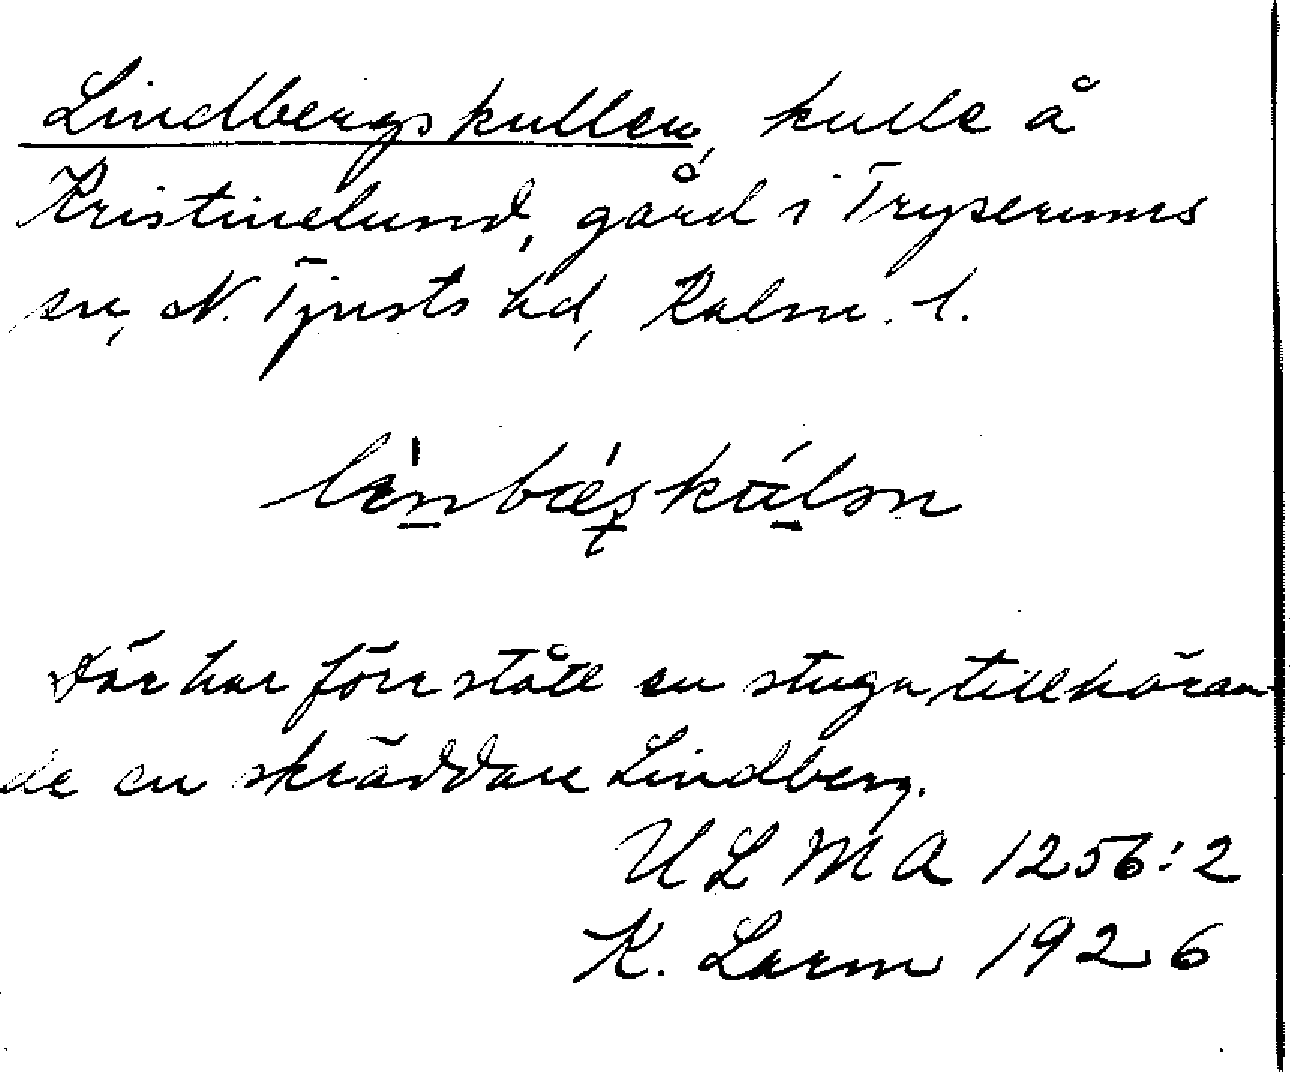 Lindbergskullen, kulle å
Kristinelund, gård i Tryserums
sn, N. Tjusts hd, Kalm. l.
Där har förr stått en stuga tillhöran-
de en skräddare Lindberg.
ULMA 1256:2
K. Larm 1926